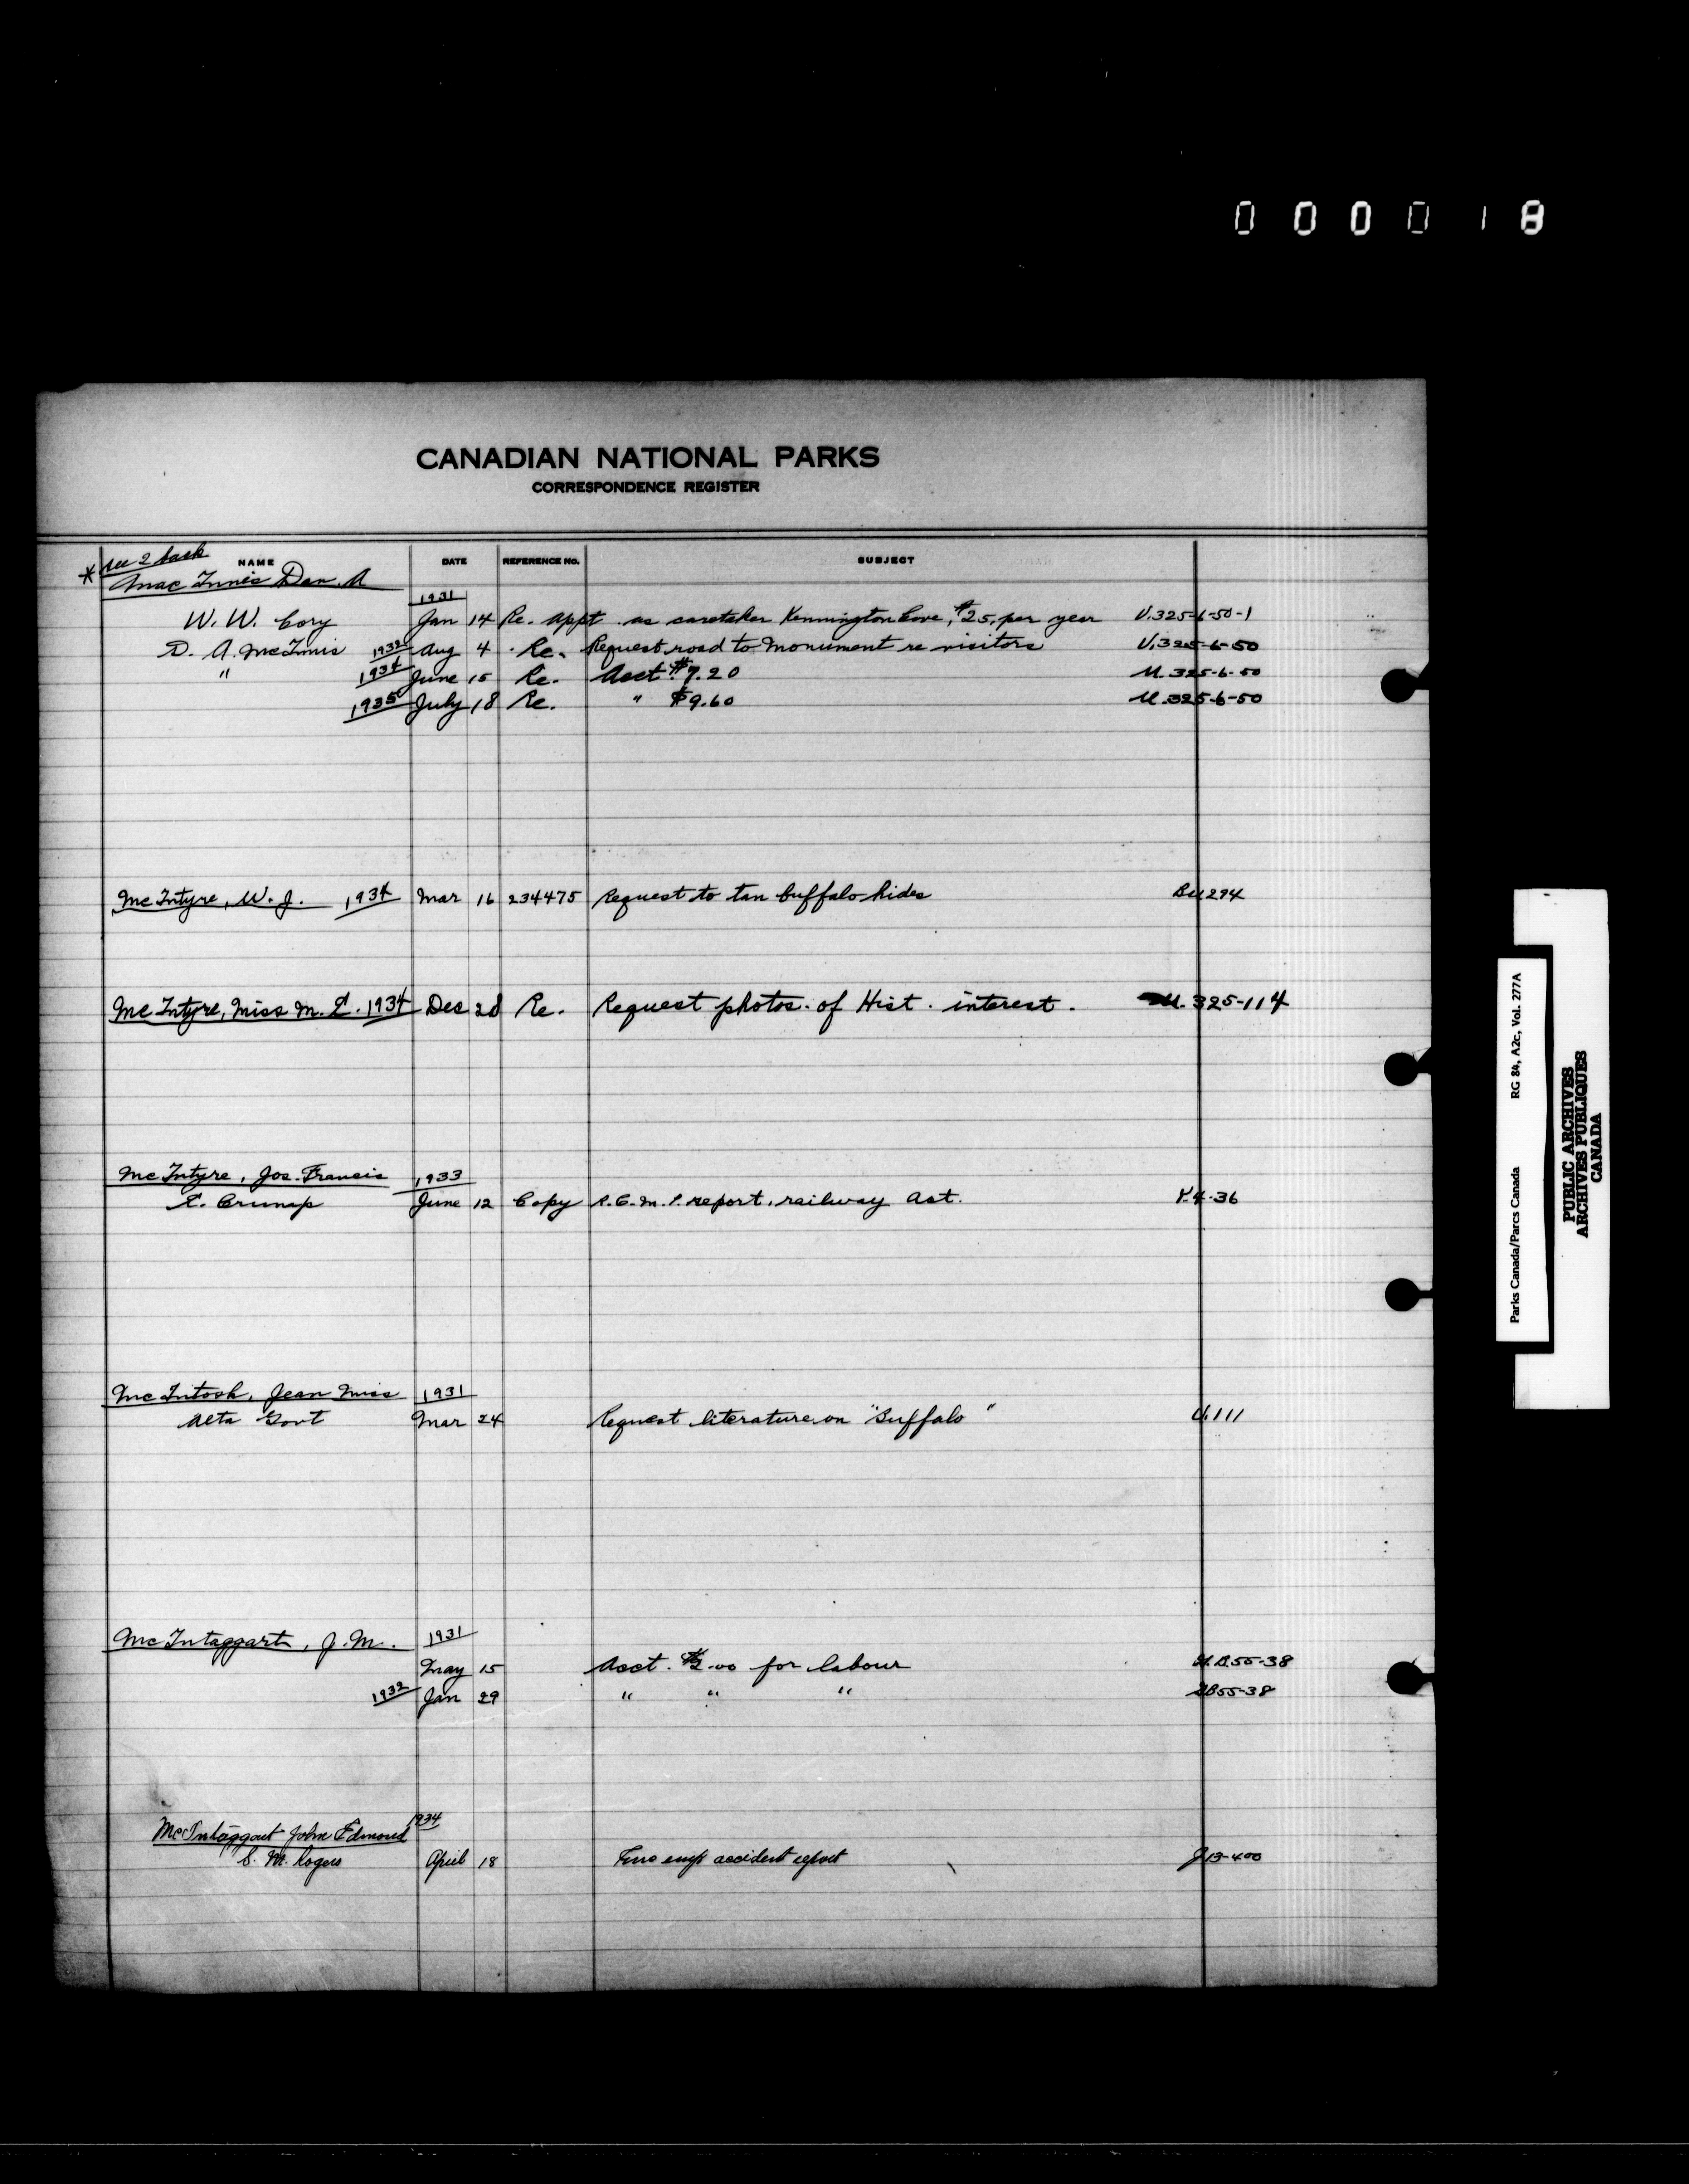 000018
CANADIAN NATIONAL PARKS
CORRESPONDENCE REGISTER
* see 2 back
NAME DATE REFERENCE No. SUBJECT
MacInnis Dan. A
1931
W. W. Cory Jan 14 Re. appt. as caretaker Kennington Cove, $25. per year U.325-6-50-1
D. A. McInnis 1932 Aug 4 Re. Request road to Monument re visitors U.325-6-50
" 1934 June 15 Re. Acct. $7.20 U.325-6-50
1935 July 18 Re. " $9.60 U.325-6-50
McIntyre, W. J. 1934 Mar 16 234475 Request to tan buffalo hides Bu294
McIntyre, Miss M. E. 1934 Dec 28 Re. Request photos. of Hist. interest. U.325-114
McIntyre, Jos. Francis 1933
E. Crump June 12 Copy R.C.M.P. report, railway Act. Y.4-36
McIntosh, Jean Miss 1931
Alta Govt Mar 24 Request literature on "Buffalo" U.111
McIntaggart, J. M. 1931
May 15 Acct. $2.00 for labour 55-38
1932 Jan 29 " " " 55-38
McIntaggart John Edmond 1934
S. M. Rogers April 18 accident report J13-400
Parks Canada/Parcs Canada RG 84, A2c, Vol. 277A
PUBLIC ARCHIVES
ARCHIVES PUBLIQUES
CANADA